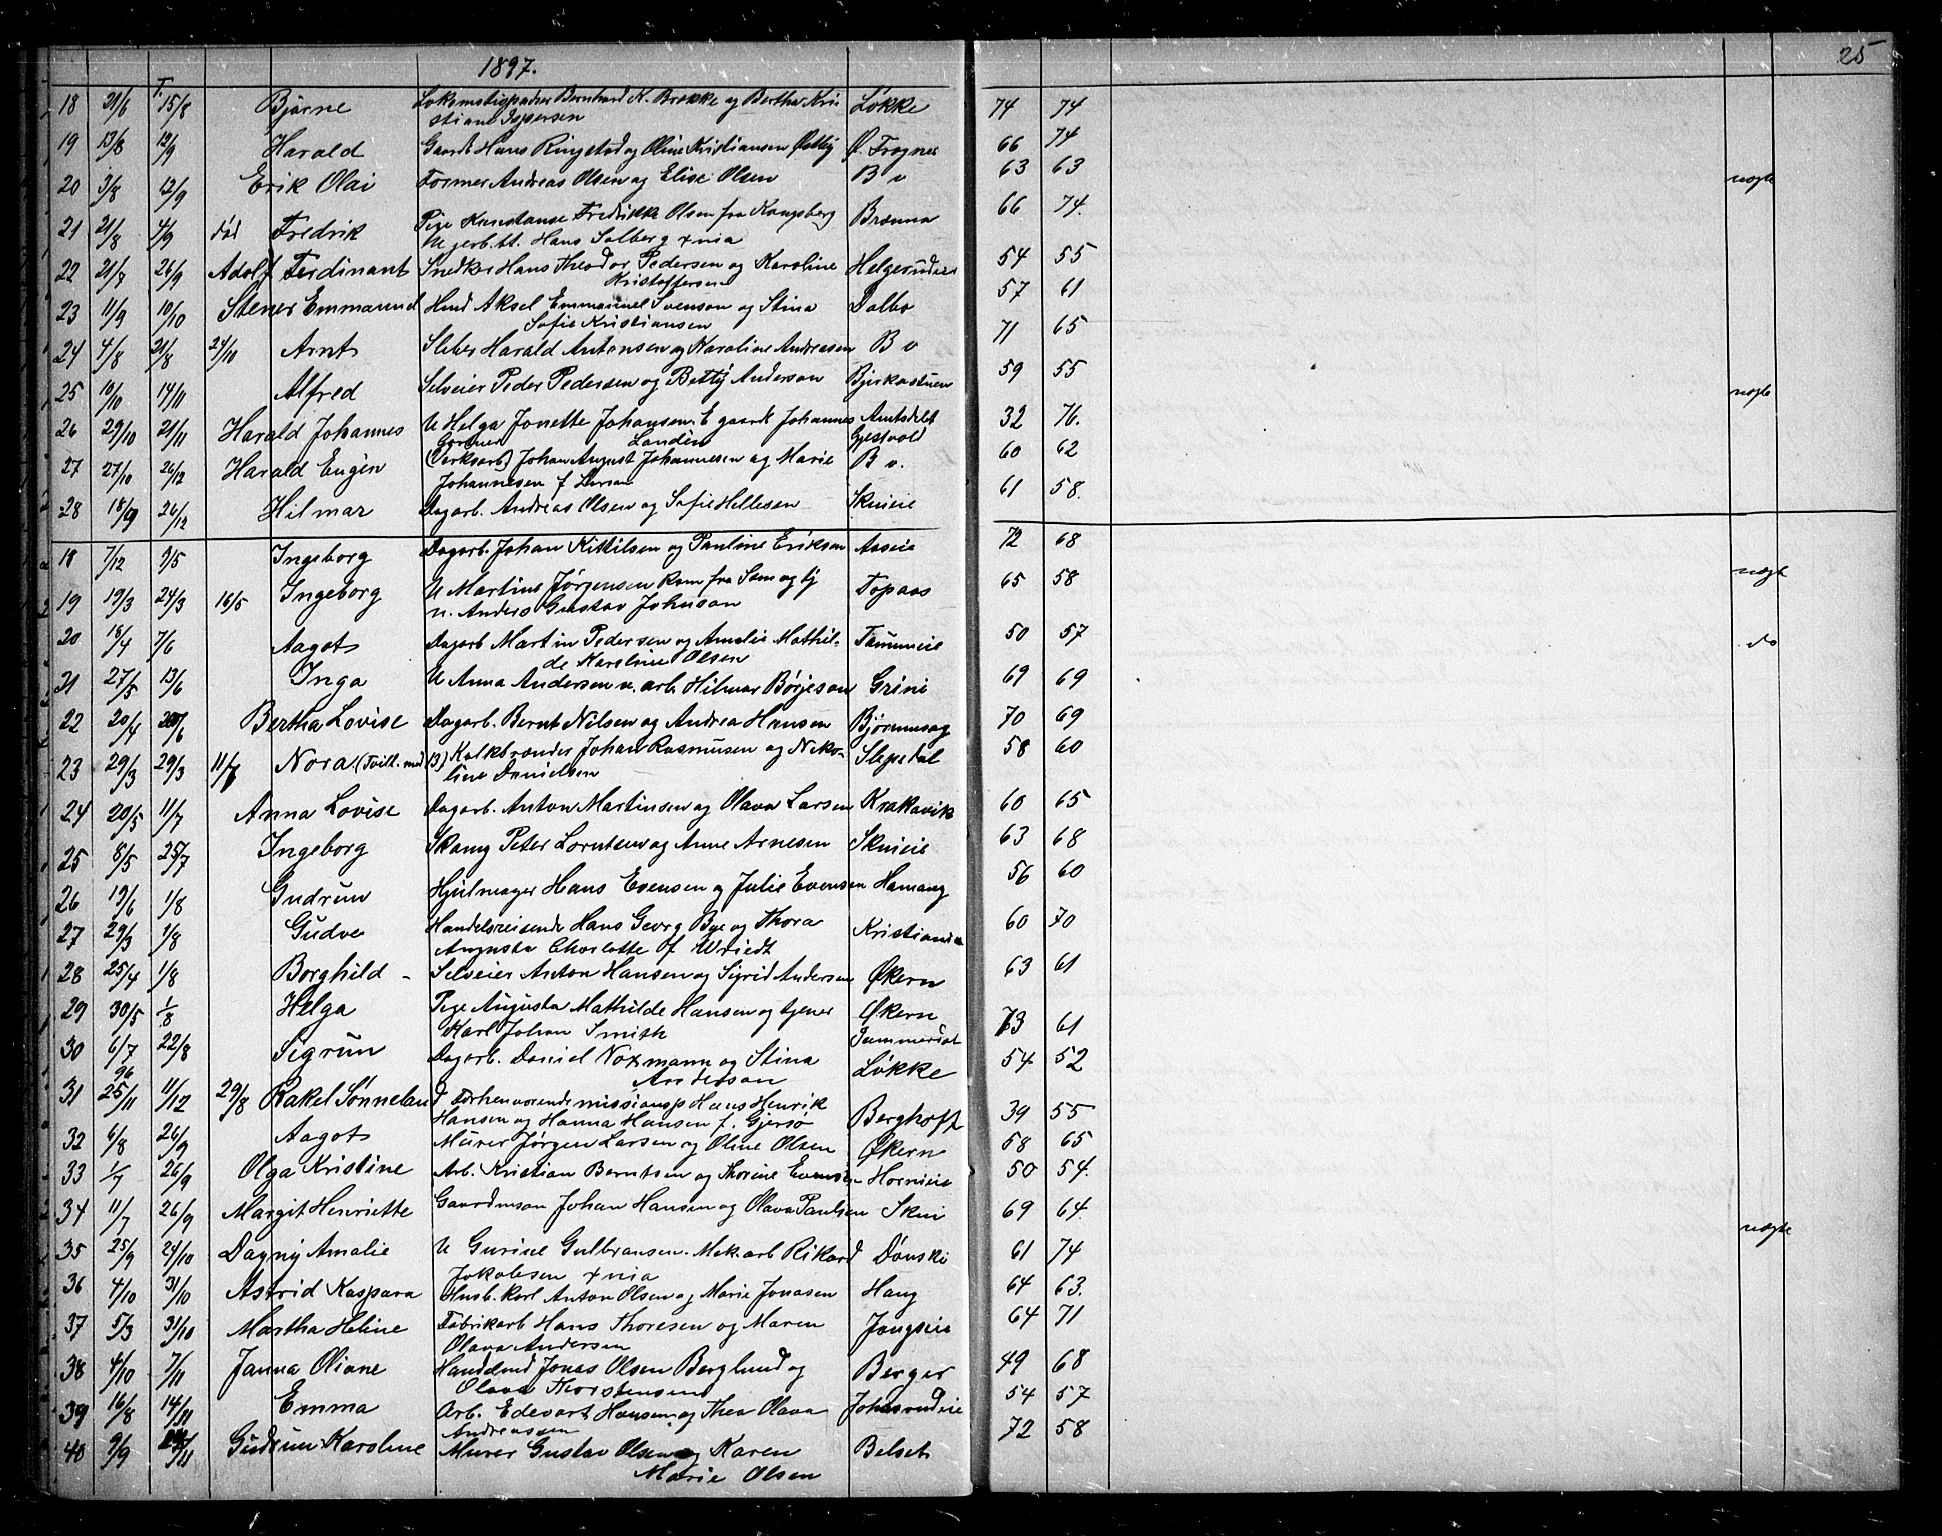 1897. 25
T.
18 21/6 15/8 Bjarne Lokomotivpudser Bernhard K. Brække og Bertha Kri Løkke 74 74
stiane Jespersen
19 13/8 12/9 Harald Gaardb Hans Ringstad og Oline Kristiansen Østby Ø. Frogner 66 74
20 3/8 12/9 Erik Olai Former Andreas Olsen og Elise Olsen B v 63 63 nøgte
21 21/8 4/9 død Fredrik Pige Konstanse Fredrikke Olsen fra Kongsberg Brænna 66 74.
U gjerb. st. Hans Solberg + nia
22 21/7 26/9 Adolf Ferdinant Snedker Hans Theodor Pedersen og Karoline Helgerudeie 54 55
Kristoffersen
23 11/9 10/10 Stener Emmanuel Hmd Aksel Emmanuel Svenson og Stina Dalbo 57 61
Sofie Kristiansen
24 4/8 21/8 24/10 Arnt Sliber Harald Antonsen og Karoline Andreasen B v 71 65
25 10/10 14/11 Alfred Selveier Peder Pedersen og Betty Anderson Bjerkastuen 59 55 nøgte
26 29/10 21/11 Harald Johannes U Helga Jonette Johansen. E gaardb Johannes Amtsdelet 32 76.
Landén Gjestvold
27 27/10 26/12 Harald Eugén (Verksarb) Johan August Johannesen og Marie B v. 60 62
Johannesen f Larsen
28 18/9 26/12 Hilmar Dagarb. Andreas Olsen og Sofie Hellesen Skuieie 61 58.
18 7/12 9/5 Ingeborg Dagarb. Johan Kittilsen og Pauline Eriksen Aaseie 72 68
19 19/3 24/3 16/5 Ingeborg U Martine Jørgensen kom fra Sem og tj Topaas 65 58 nøgte
u. Anders Gustav Johnson
20 18/4 7/6 Aagot Dagarb Martin Pedersen og Amalie Mathil- Tanumeie 50 57 do
de Karoline Olsen
21 27/5 13/6 Inga U Anna Andersen u. arb. Hilmar Børjeson Grini 69 69
22 20/4 20/6 Bertha Lovise Dagarb. Bernt Nilsen og Andrea Hansen Bjørnumsag 70 69
23 29/3 29/3 11/7 Nora (Tvill. med 13) Kalkbrænder Johan Rasmusen og Niko- Slepedal 58 60
line Danielsen
24 20/5 11/7 Anna Lovise Dagarb. Anton Martinsen og Olava Larsen Krakavik 60 65
25 8/5 25/7 Ingeborg Skomg Peter Lorntsen og Anne Arnesen Skuieie 63 68
26 19/6 1/8 Gudrun Hjulmager Hans Evensen og Julie Evensen Hamang 56 60
27 29/3 1/8 Gudve Handelsreisende Hans Georg Bye og Thora Kristiania 60 70
Augusta Charlotte f Wriedt
28 25/4 1/8 Borghild - Selveier Anton Hansen og Sigrid Andersen Økern 63 61
29 30/5 1/8 Helga Pige Augusta Mathilde Hansen og tjener Økern 73 61
Karl Johan Smith
30 6/7 22/8 Sigrun Dagarb. Daniel Normann og Stina Løkke 54 52
Anderson
96
31 25/11 11/12 29/8 Rakel Sønneland Forhenværende missionsp Hans Henrik Berghoff 39 55
Hansen og Hanna Hansen f. Gjersø
32 6/8 26/9 Aagot Murer Jørgen Larsen og Oline Olsen Økern 68 65
33 1/7 26/9 Olga Kristine Arb. Kristian Berntsen og Thorine Evensen Horneie 50 54.
34 11/7 26/9 Margit Henriette Gaardmson Johan Hansen og Olava Paulsen Skui 69 64.
35 25/9 24/10 Dagny Amalie U Gurine Gulbransen. Mek. arb Rikard Dønski 61 74 nøgte
Jakobsen + nia
36 4/10 31/10 Astrid Kaspara Husb. Karl Anton Olsen og Marie Jonasen Haug 64 63.
37 5/3 31/10 Martha Heline Fabrikarb Hans Thoresen og Maren Jongseie 64 71
Olava Andersen
38 4/10 7/11 Janna Oliane Handelmd Jonas Olsen Berglund og Berger 49 68
Olava Thorstensen
39 16/8 14/11 Emma Arb. Edevart Hansen og Thea Olava Johnsrudeie 54 57
Andreassen
40 9/9 Gudrun Karoline Murer Gustav Olsen og Karen Belset 72 58
Marie Olsen